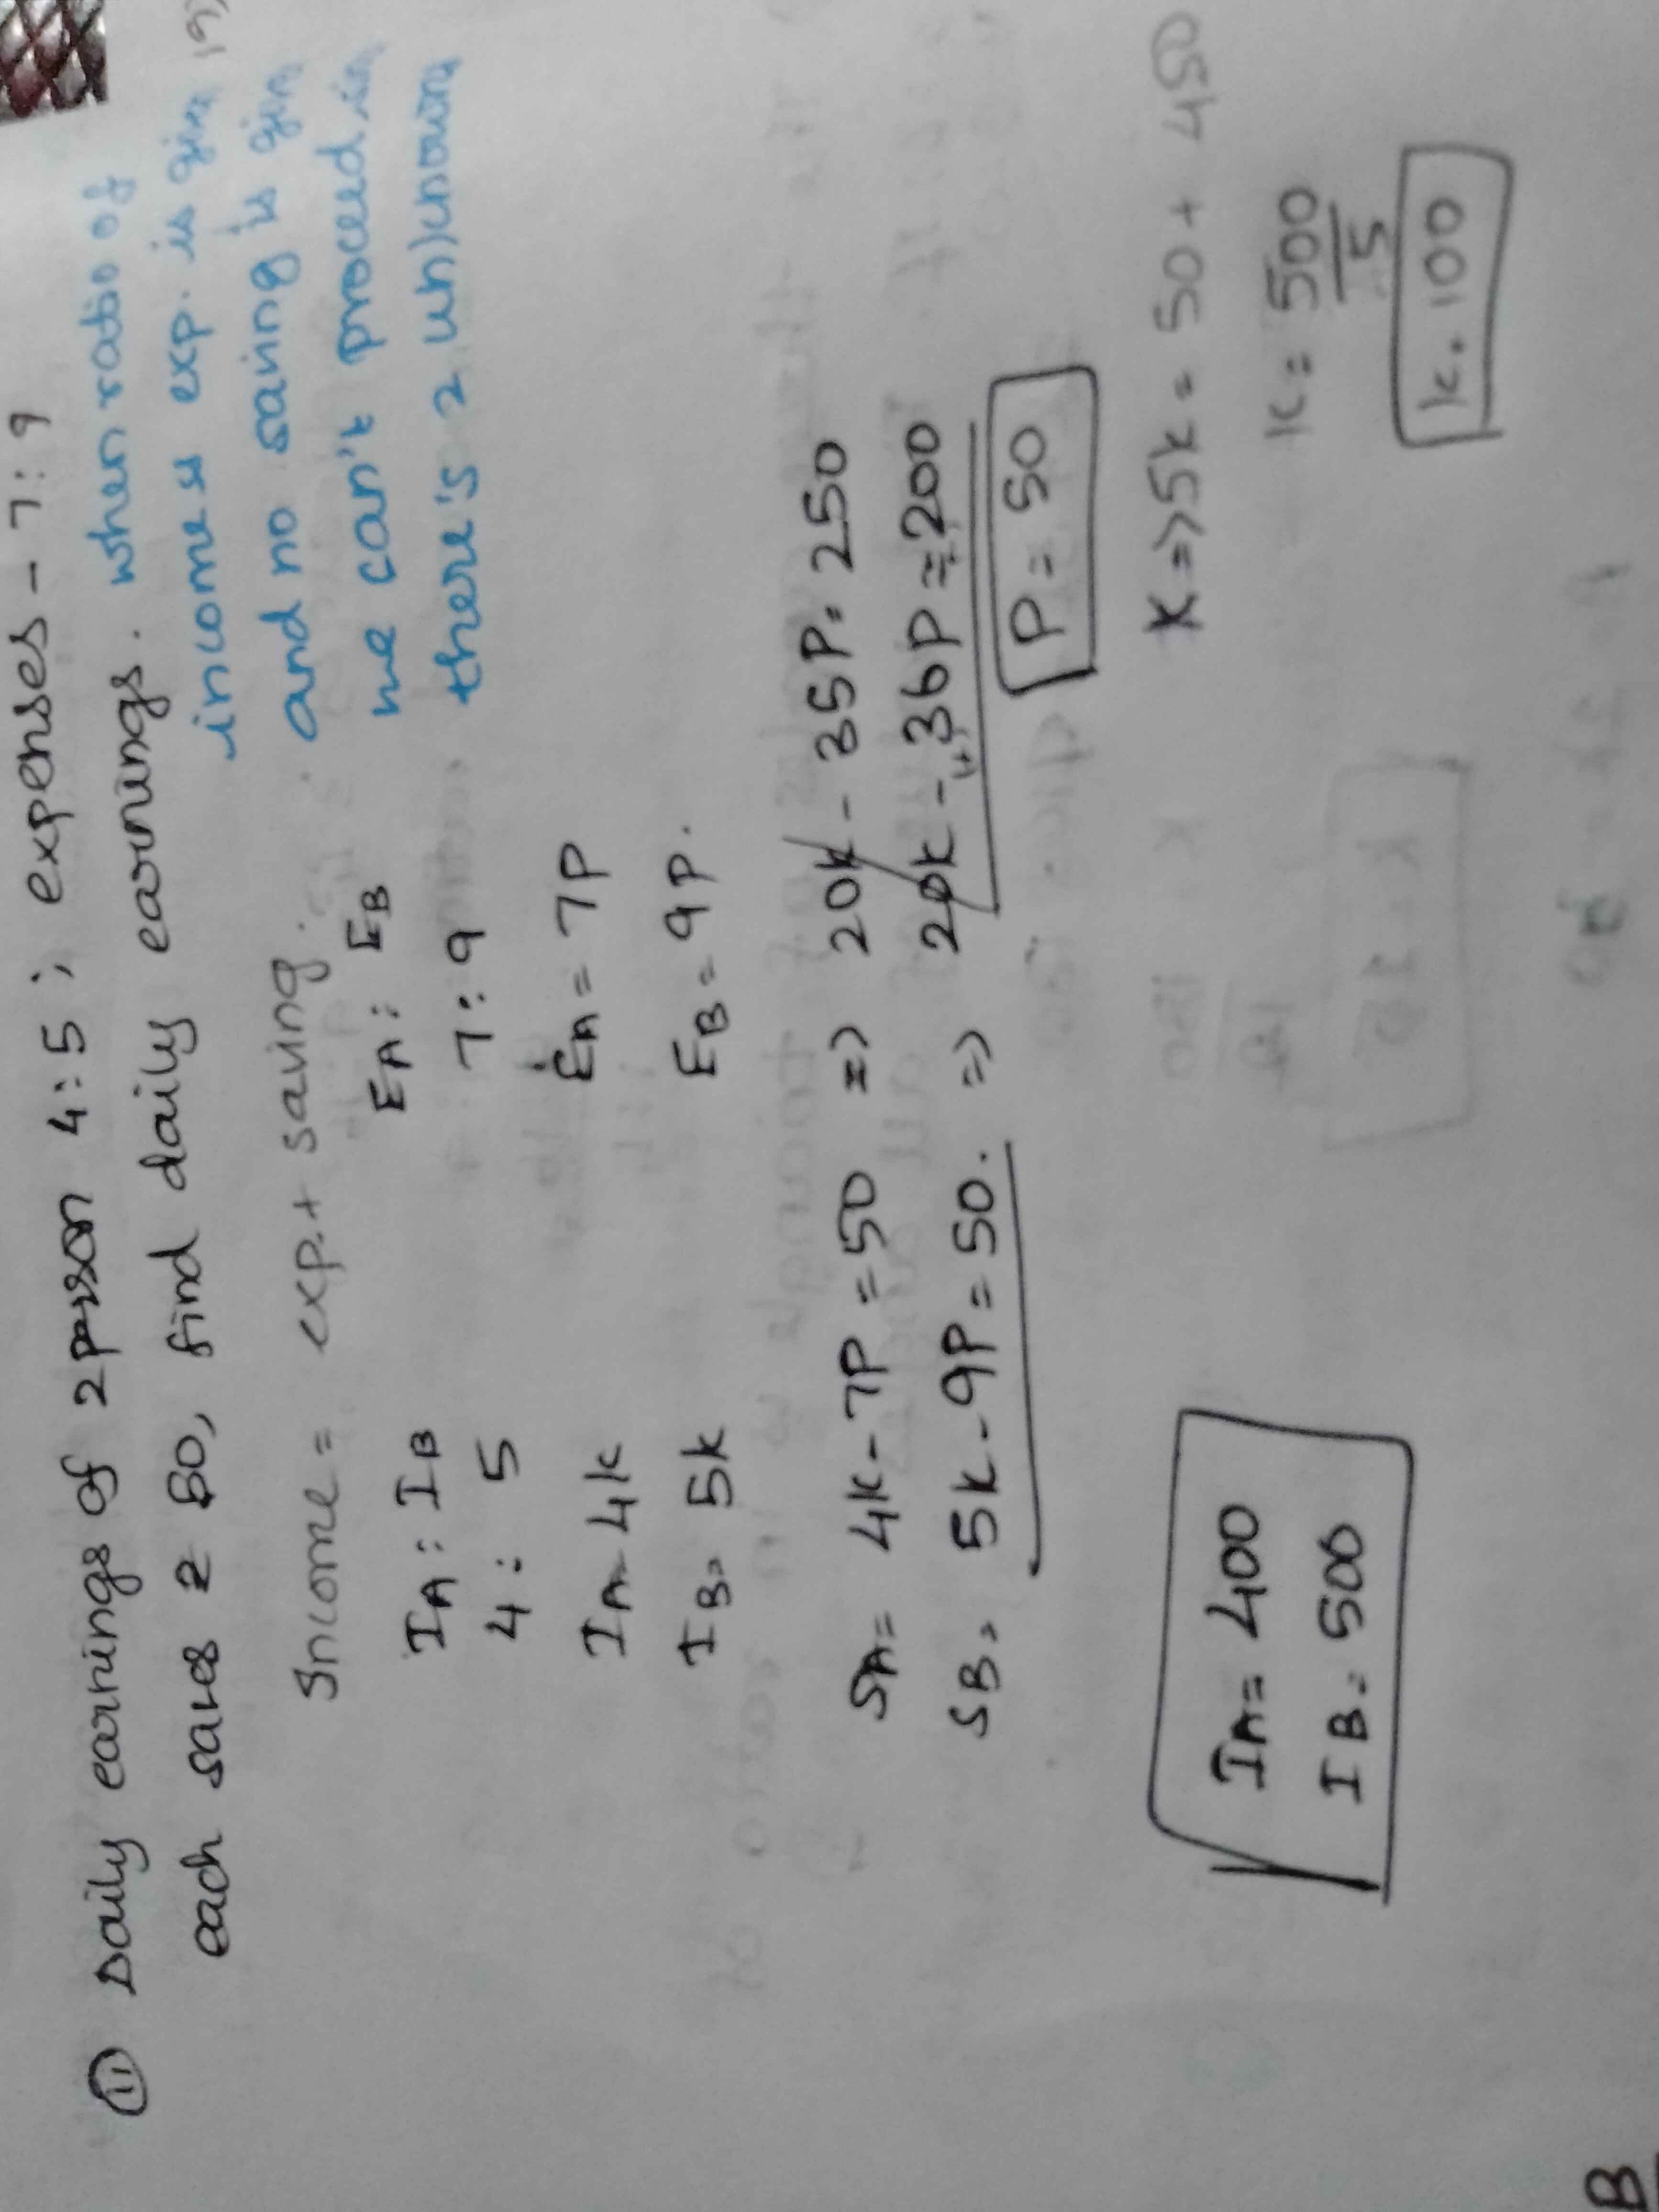 11 Daily earnings of 2 person 4:5 ; expenses - 7:9
each saves ₹ 50, find daily earnings.
when ratio of
income & exp. is give
and no saving is give
we can't proceed
there's 2 unknown
Income = exp.+ saving.
IA : IB EA : EB
4 : 5 7 : 9
IA = 4k EA = 7P
IB = 5k EB = 9P.
SA = 4k - 7P = 50 => 20k - 35P = 250
SB = 5k - 9P = 50. => 20k - 36P = 200
P = 50
K => 5k = 50 + 450
k = 500
5
k = 100
IA = 400
IB = 500
B